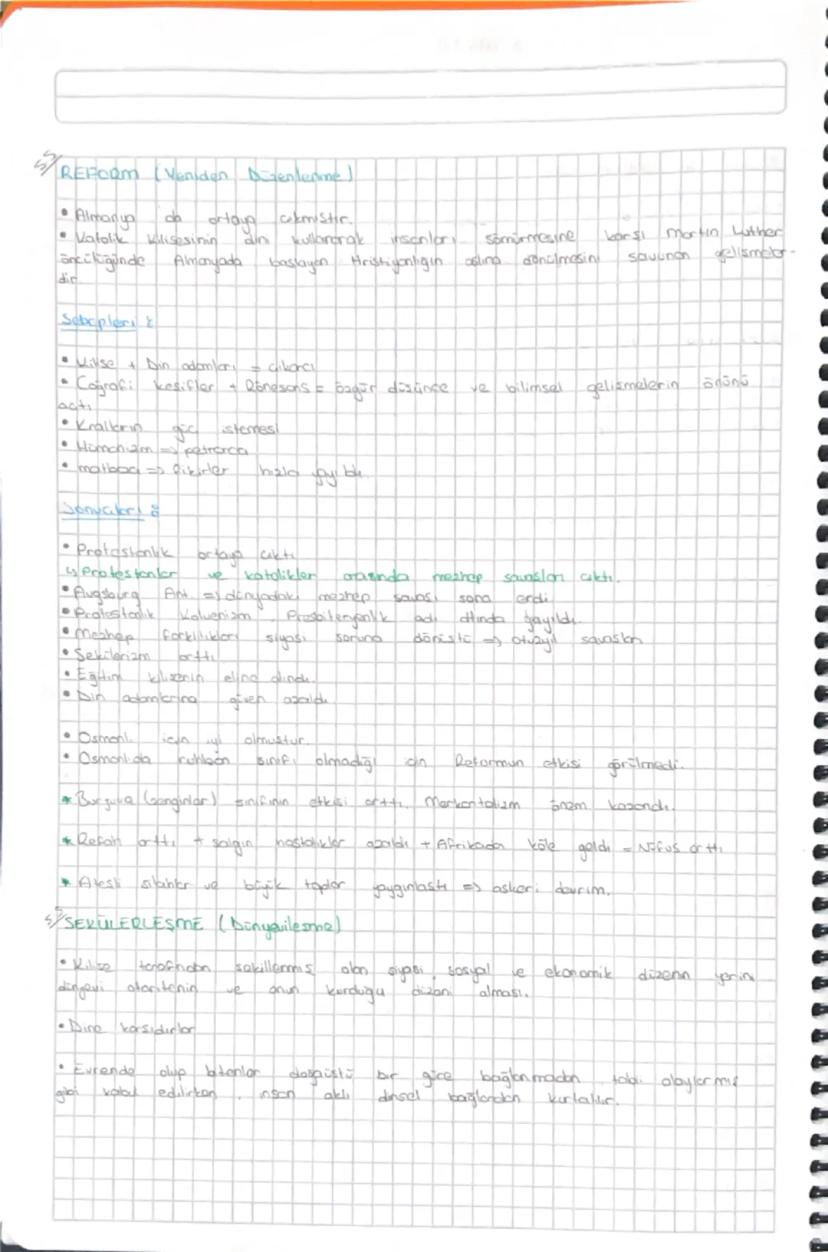 REFORM (Yeniden Düzenlenme)
• Almanya da ortaya çıkmıştır.
• Katolik kilisesinin din kullanarak insanları sömürmesine karşı Martin Luther
öncülüğünde Almanyada başlayan Hristiyanlığın aslına dönülmesini savunan gelişmeler-
dir
Sebepleri :
• Kilise + Din adamları = çıkarcı
• Coğrafi keşifler + Rönesans = özgür düşünce ve bilimsel gelişmelerin önünü
açtı
• Kralların güç istemesi
• Hümanizm => petrarca
• matbaa => fikirler hızla yayıldı.
Sonuçları :
• Protestanlık ortaya çıktı
↳ Protestanlar ve katolikler arasında mezhep savaşları çıktı.
• Augsburg Ant. => dünyadaki mezhep savaşı sona erdi.
• Protestanlık Kalvenizm, Presbiteryenlik adı altında yayıldı.
• Mezhep farklılıkları siyasi soruna dönüştü => otuzyıl savaşları
• Sekülerizm arttı
• Eğitim kilisenin elinden alındı.
• Din adamlarına güven azaldı
• Osmanlı için iyi olmuştur.
• Osmanlıda ruhban sınıfı olmadığı için Reformun etkisi görülmedi.
* Burjuva (zenginler) sınıfının etkisi arttı. Merkantalizm önem kazandı.
* Refah arttı + salgın hastalıklar azaldı + Afrikadan köle geldi = Nüfus arttı
* Ateşli silahlar ve büyük toplar yaygınlaştı => askeri devrim.
SEKÜLERLEŞME (Dünyevileşme)
• Kilise tarafından şekillenmiş olan siyasi, sosyal ve ekonomik düzenin yerini
dünyevi otoritenin ve onun kurduğu düzeni alması.
• Dine karşıdırlar
• Evrende olup bitenler doğaüstü bir güce bağlanmadan tabi olaylarmış
gibi kabul edilirken, insan aklı dinsel bağlardan kurtulur.